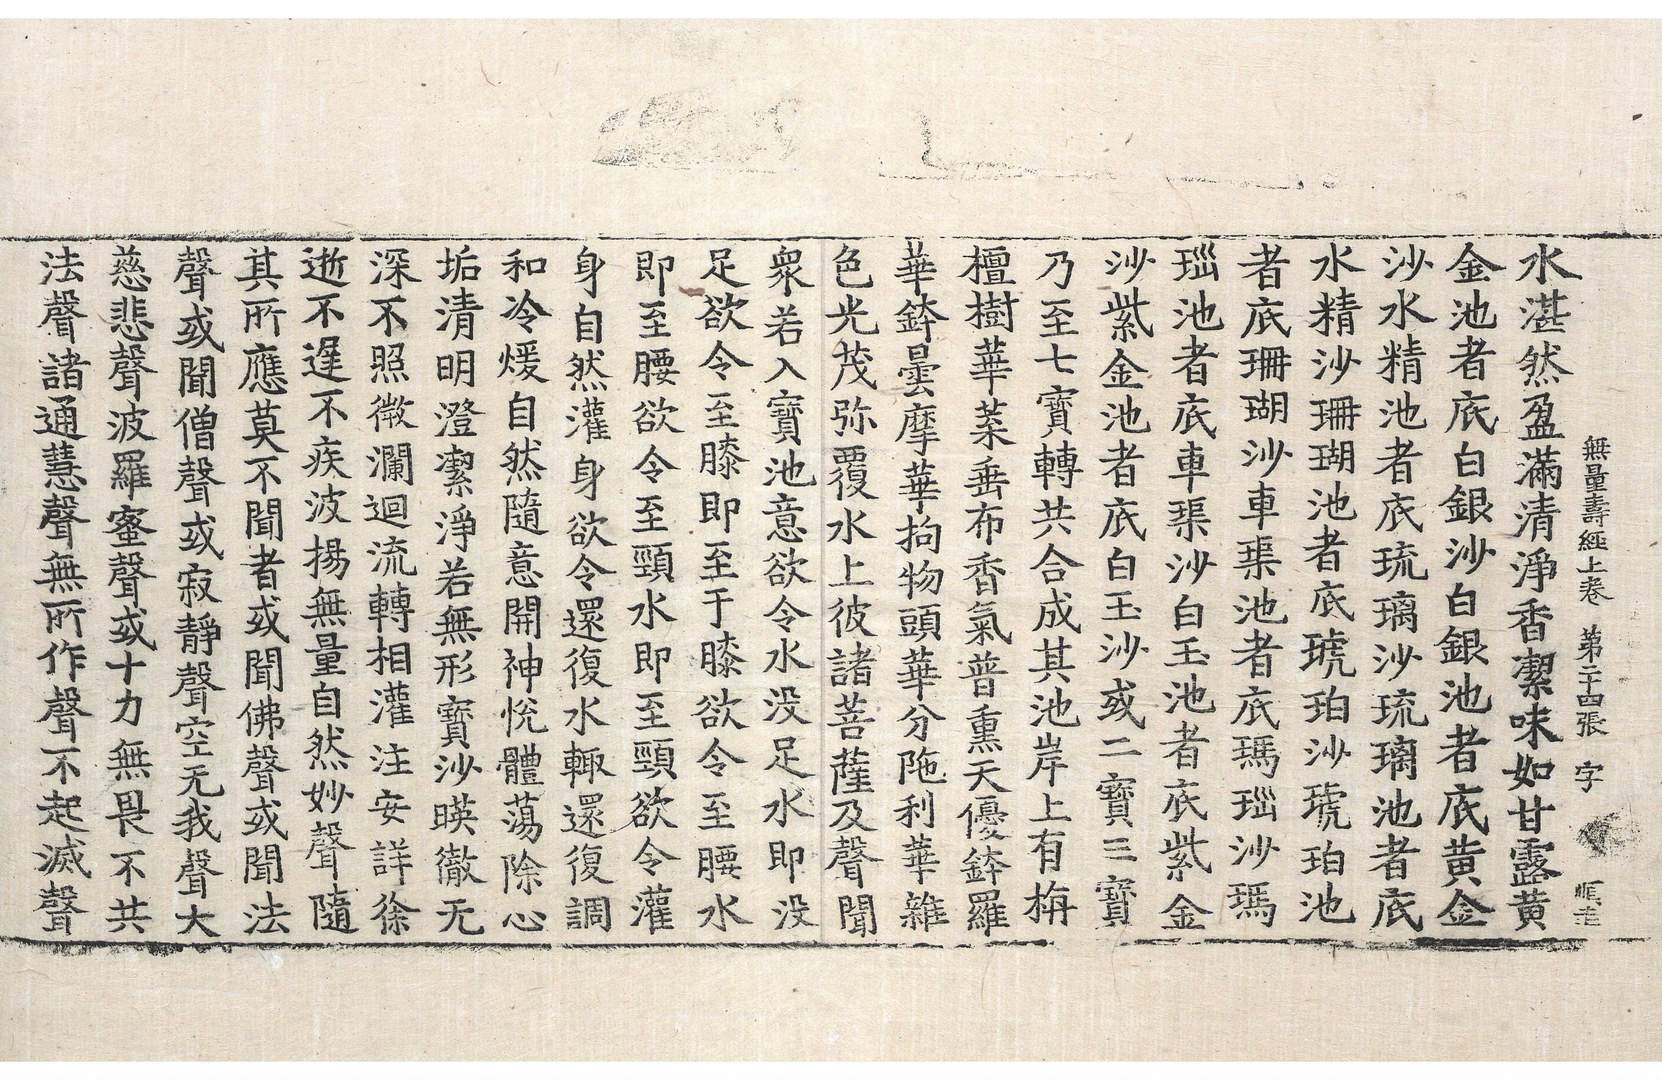 無量壽經上卷 第二十四張 字 順吉
水湛然盈滿清淨香潔味如甘露黃
金池者底白銀沙白銀池者底黃金
沙水精池者底琉璃沙琉璃池者底
水精沙珊瑚池者底琥珀沙琥珀池
者底珊瑚沙車𤦲池者底瑪瑙沙瑪
瑙池者底車𤦲沙白玉池者底紫金
沙紫金池者底白玉沙或二寶三寶
乃至七寶轉共合成其池岸上有栴
檀樹華葉垂布香氣普熏天優鉢羅
華鉢曇摩華拘物頭華分陁利華雜
色光茂弥覆水上彼諸菩薩及聲聞
衆若入寶池意欲令水没足水即没
足欲令至膝即至于膝欲令至腰水
即至腰欲令至頸水即至頸欲令灌
身自然灌身欲令還復水輙還復調
和冷煖自然隨意開神悅體蕩除心
垢清明澄潔淨若無形寶沙暎徹无
深不照微瀾迴流轉相灌注安詳徐
逝不遅不疾波揚無量自然妙聲隨
其所應莫不聞者或聞佛聲或聞法
聲或聞僧聲或寂静聲空无我聲大
慈悲聲波羅蜜聲或十力無畏不共
法聲諸通慧聲無所作聲不起滅聲